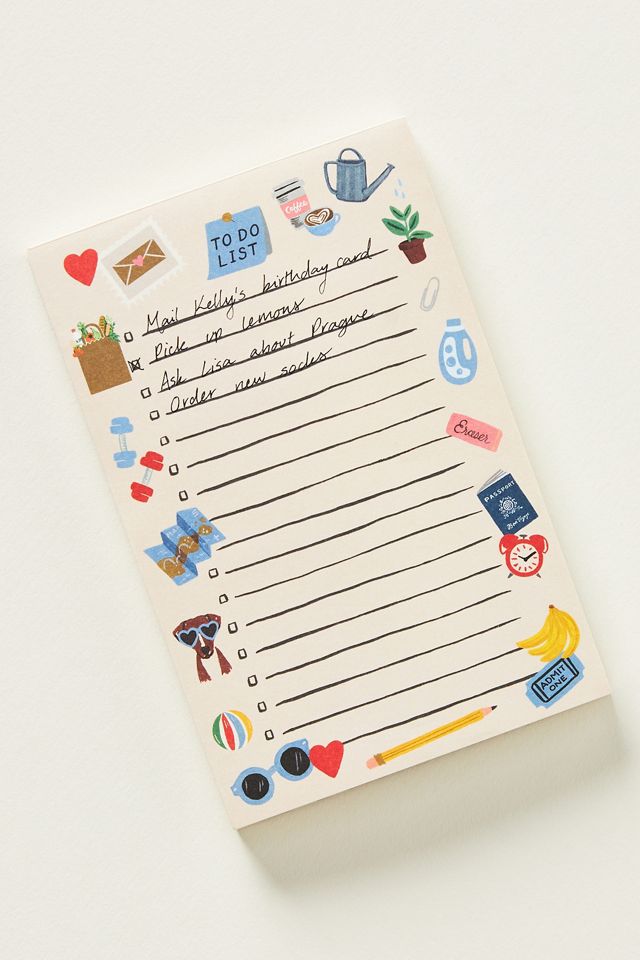 Coffee
TO DO
LIST
Mail Kelly's birthday card
Pick up lemons
Ask Lisa about Prague
Order new socks
Eraser
PASSPORT
ADMIT
ONE